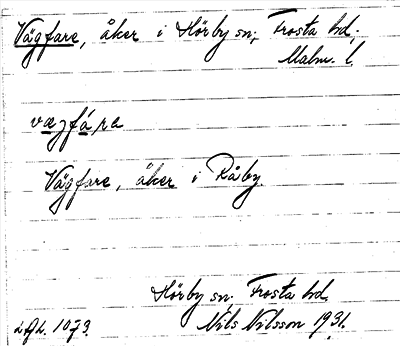 Vägfare, åker i Hörby sn; Frosta hd,
Malm. l.
vægfára
Vägfare, åker i Råby.
Hörby sn; Frosta hd.
1073. Nils Nilsson 1931.